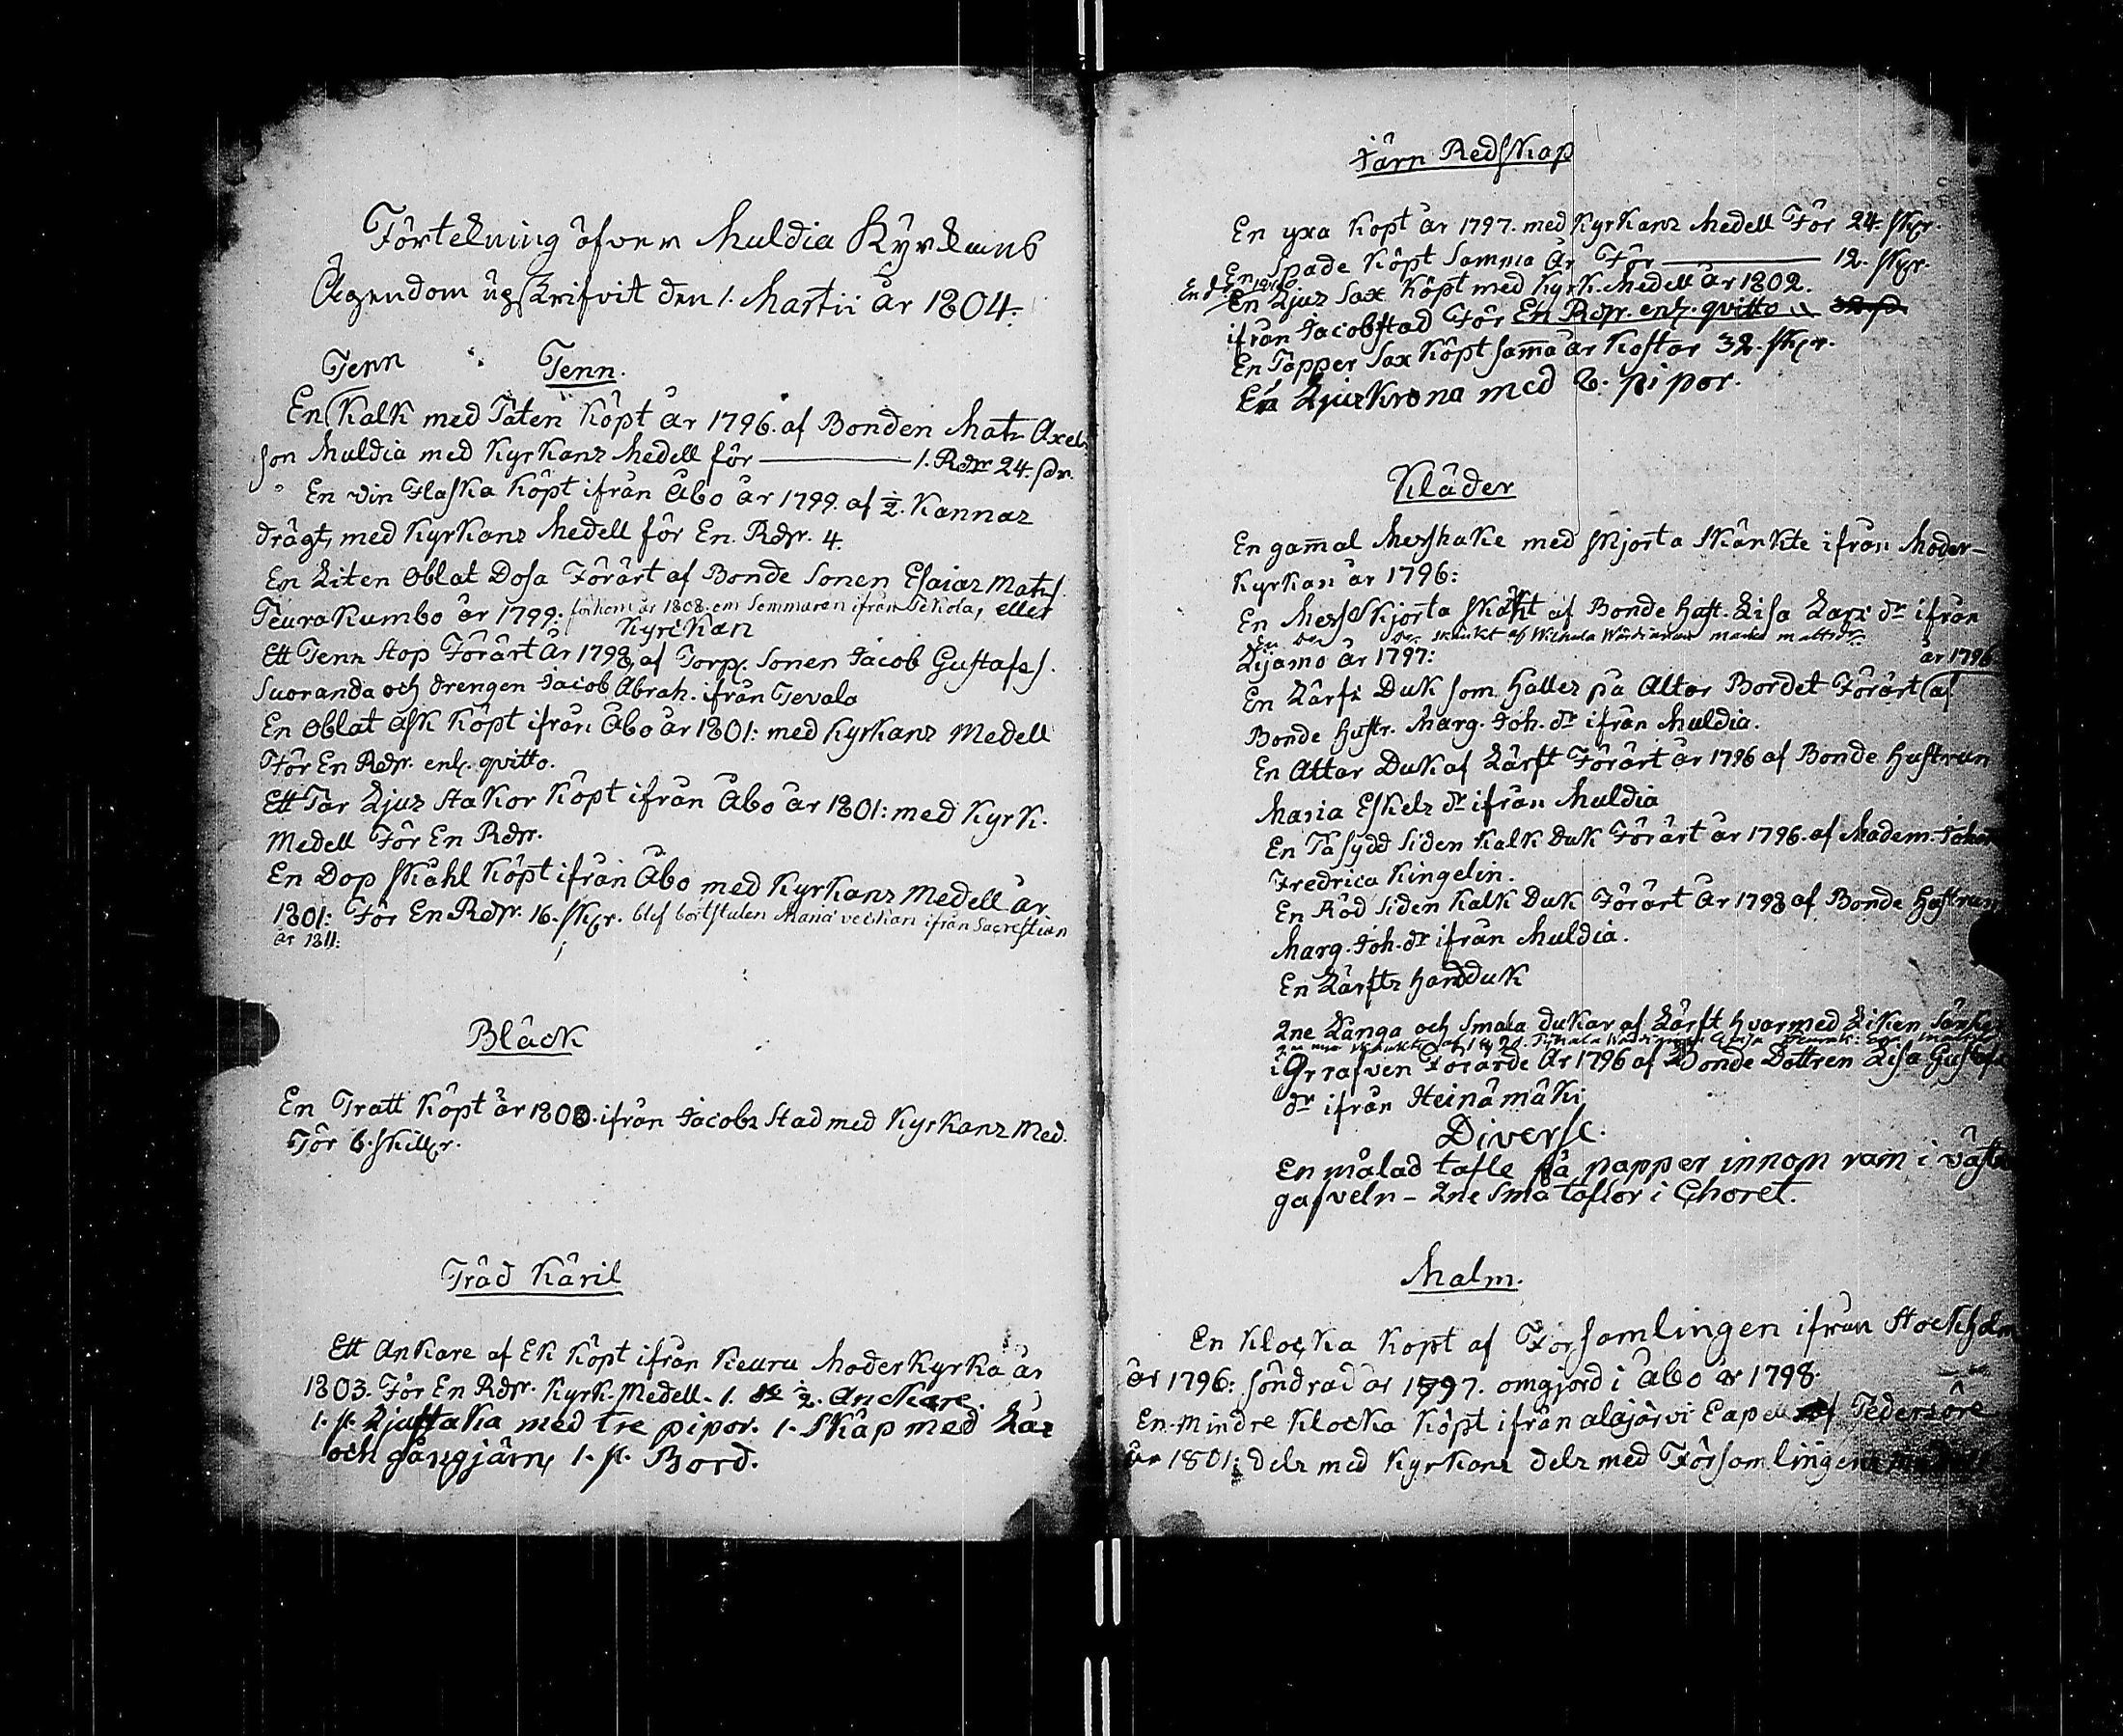 Förtekning öfver Muldia Kyrkans
Ägendom upskrifvit den 1. Martii år 1804.
Tenn Tenn.
En Kalk med Paten Köpt år 1796. af Bonden Mats Axels
son Muldia med Kyrkans Medell för — 1. Rdr 24. sk.
En vin Flaska Köpt ifrån Åbo år 1799. af ½. Kannas
drägt, med Kyrkans Medell för En. Rdr. 4.
En Liten Oblat Dosa Förärt af Bonde Sonen Esaias Mats.
Peurakumbo år 1799: förkom år 1808. om Sommaren ifrån Sckola, eller
Kyrckan
Ett Tenn Stop Förärt År 1798, af Torp. Sonen Jacob Gustafs.
Suoranda och drengen Jacob Abrah. ifrån Tevala
En Oblat Ask Köpt ifrån Åbo år 1801: med Kyrkans Medell
För En Rdr. enl. qvitto.
Ett Par Ljus Stakor Köpt ifrån Åbo år 1801: med Kyrk.
Medell För En Rdr.
En Dop Skåhl Köpt ifrån Åbo med Kyrkans Medell år
1801: För En Rdr. 16. Sk. blef bortstulen Mariä veckan ifrån Sacrestian
år 1811:
Bläck
En Tratt Köpt år 1803. ifrån Jacobs Stad med Kyrkans Med.
För 6. Skill.
Träd Käril
Ett Ankare af Ek Köpt ifrån Keuru Moderkyrka år
1803. För En Rdr. Kyrk. Medell. 1. st ½. Anckare.
1. st. Ljustaka med tre pipor. 1. Skåp med Lås
och gångjärn, 1. st. Bord.
Järn Redskap
En yxa Köpt år 1797. med Kyrkans Medell För 24. sk.
En Spade Köpt Samma År För — 12. sk.
En Ljus Sax Köpt med Kyrk. Medell år 1802.
ifrån Jacobstad För En Rdr. enl. qvitto
En Papper Sax Köpt samma år Kostar 32. sk.
En Ljuskrona med 8. pipor.
Kläder
En gammal Messhake med Skjorta Skänkte ifrån Moder-
Kyrkan år 1796:
En Mess Skjorta Skänkt af Bonde Hust. Lisa Lars dr ifrån
Lijamo År 1797:
år 1796
En Lärfs Duk som Halles på Altar Bordet Förärt af
Bonde Hustr. Marg. Joh. dr ifrån Muldia.
En Altar Duk af Lärft Förärt år 1796 af Bonde Hustrun
Maria Eskels dr ifrån Muldia
En Påsydd Siden Kalk Duk Förärt år 1796. af Madem. Johan
Fredrica Kingelin.
En Röd Siden Kalk Duk Förärt År 1798 af Bonde Hustrun
Marg. Joh. dr ifrån Muldia.
En Lärfts Handduk
2ne Långa och Smala dukar af Lärft hvarmed Liken Sänkes
i Grafven Förärde År 1796 af Bonde Dottren Lisa Gustafs
dr ifrån Heinämäki
Diverse.
En målad tafle på papper innom ram i västra
gafveln - 2ne små taflor i Choret.
Malm.
En Klocka Köpt af Församlingen ifrån Stockholm
år 1796: söndrad år 1797. omgjord i Åbo år 1798.
En mindre Klocka Köpt ifrån Alajärvi Capell af Pedersöre
år 1801: dels med Kyrkans dels med Församlingens